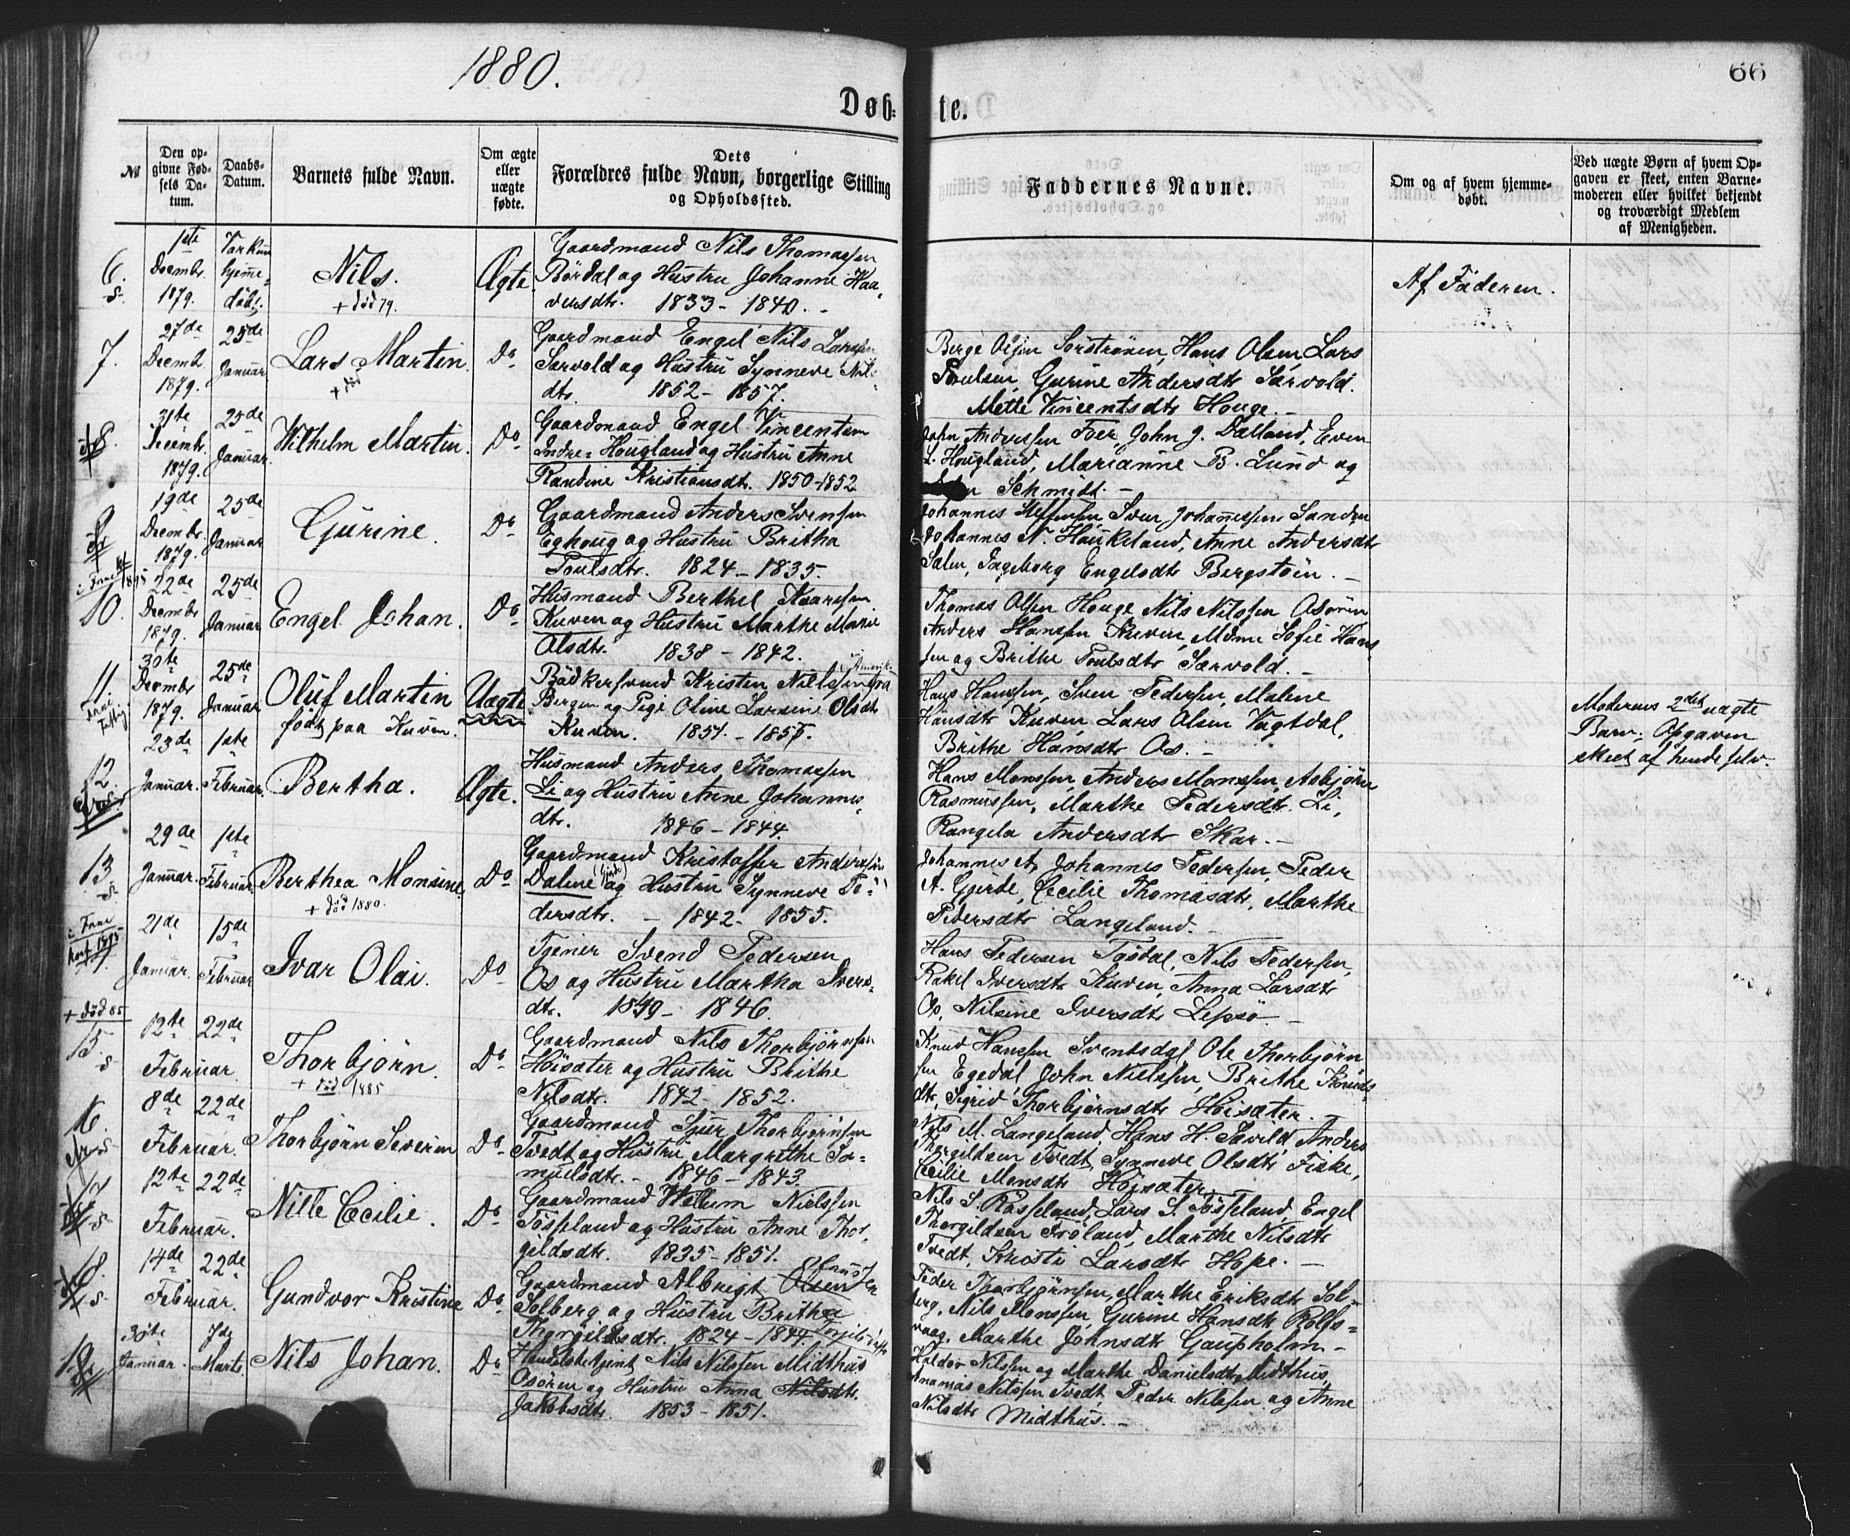 1880.
66
Døb-
te.
№
Den op-
givne Fød-
sels Da-
tum.
Daabs-
Datum.
Barnets fulde Navn.
Om ægte
eller
uægte
fødte.
Dets
Forældres fulde Navn, borgerlige Stilling
og Opholdssted.
Faddernes Navne.
Om og af hvem hjemme-
døbt.
Ved uægte Børn af hvem Op-
gaven er skeet, enten Barne-
moderen eller hvilket bekjendt
og troværdigt Medlem
af Menigheden.
6
1ste
Decembr.
1879.
hjemme-
døbt.
Nils.
+ død 79.
Ægte
Gaardmand Nils Thomassen
Børdal og Hustru Johanne Haa-
versdtr. 1833 - 1840.
Af Faderen.
7.
27de
Decembr.
1879.
25de
Januar
Lars Martin
+ død
Do
Gaardmand Engel Nils Larssen
Særvold og Hustru Synneve Nils-
dtr. 1852 - 1857.
Berge Olsen Hans Olsen Lars
Poulsen, Gurine Andersdtr Særvold.
Mette Vincentsdtr Houge.
8.
31te
Decembr.
1879.
25de
Januar
Wilhelm Martin.
Do
Gaardmand Engel Vincentsen
Indre-Hougland og Hustru Anne
Randine Kristiansdt. 1850-1852
John Anderssen John J. Dalland, Even
L. Hougland, Marianne B. Lund og
Schmidt.
9
19de
Decembr.
1879.
25de
Januar
Gurine.
Do
Gaardmand Anders Svensen
Eghoug og Hustru Britha
Poulsdtr. 1824 - 1835.
Johannes Steffensen, Sver Johannessen Sanden
Johannes N. Haukeland, Anne Andersdtr
Salen, Ingeborg Engelsdtr Bergstøin.
10.
22de
Decembr
1879.
25de
Januar
Engel Johan.
Do
Husmand Berthel Kaarssen
Kuven og Hustru Marthe Marie
Olsdtr. 1838 - 1842.
Thomas Olsen Houge Nils Nilssen Osøren
Anders Hanssen Kuven, Mdme Sofie Hans
sen og Brithe Poulsdtr Særvold.
11.
30te
Decembr
1879.
25de
Januar
Oluf Martin
født paa Kuven.
Uægte
Bødkersvend Kristen Nielssen fra
Bergen og Pige Oline Larsine Olsdtr
Kuven. 1851. - 1855.
Hans Hanssen, Sven Pedersen, Maline
Hansdtr Kuven, Lars Olsen Vagtdal,
Brithe Hansdtr Os.
Moderens 2det uægte
Barn. Opgaven
skeet af hende selv.
12.
23de
Januar.
1ste
Februar.
Bertha.
Ægte.
Husmand Anders Thomassen
Li og Hustru Anne Johannes-
dtr. 1846 - 1844.
Hans Monssen, Anders Monssen, Asbjørn
Rasmussen, Marthe Pedersdtr Li,
Rangela Andersdtr Skar.
13.
29de
Januar.
1ste
Februar
Berthea Monsine
+ død 1880.
Do
Gaardmand Kristoffer Anderssen
Daline og Hustru Synneve Pe-
dersdtr. - 1842 - 1855.
Johannes A, Johannes Pedersen, Peder
A. Gjerde, Cecilie Thomasdtr, Marthe
Pedersdtr Langeland.
21de
Januar.
15de
Februar
Ivar Olai.
Do
Tjener Svend Pedersen
Os og Hustru Martha Ivers-
dtr. 1849 - 1846.
Hans Pedersen Tøsdal, Nils Pedersen,
Rakel Iversdtr Kuven, Anna Larsdtr
Os, Nilsine Iversdtr Lepsø.
+ død 85
15.
12te
Februar
22de
Thorbjørn.
+ død 1885
Do
Gaardmand Nils Thorbjørnsen
Høisæter og Hustru Brithe
Nilsdtr. 1842 - 1852.
Knud Hanssen Sventsdal, Ole Thorbjørn
sen Egedal, John Nielssen, Brithe Knuds
dtr, Sigrid Thorbjørnsdtr Høisæter.
16.
8de
Februar.
22de
Thorbjørn Severin
Do
Gaardmand Sjur Thorbjørnsen
Tvedt og Hustru Margrethe Sa-
muelsdtr. - 1846 - 1843.
Nils M. Langeland, Hans H. Anders
Thorgildsen Tvedt, Synneve Olsdtr Fiske,
Cecilie Monsdtr Høisæter.
17
12te
Februar.
22de
Nille Cecilie.
Do
Gaardmand Wellum Nielssen
Tøsseland og Hustru Anne Thor-
gildsdtr. 1835 - 1851.
Nils S. Røsseland, Lars S. Tøsseland, Engel
Thorgildsen Frøland, Marthe Nilsdtr
Tvedt, Kristi Larsdtr Hope.
18.
14de
Februar.
22de
Gundvor Kristine
Do
Gaardmand Albregt Olsen
Solberg og Hustru Brithe
Thorgilsdtr. 1824 - 1844
Peder Thorbjørnsen, Marthe Eriksdtr Sol-
berg, Nils Monssen, Gurine Hansdtr Rolfs-
vaag, Marthe Johnsdtr Gaupholm
19
30te
Januar.
7de
Marts.
Nils Johan.
Do
Handelsbetjent Nils Nilssen Midthus
Osøren og Hustru Anna Nilsdtr.
Jakobsdtr. 1853 - 1851.
Haldor Nilssen og Marthe Danielsdtr Midthus,
Ananias Nilssen Tvedt, Peder Nilssen og Anne
Nilsdtr Midthus.